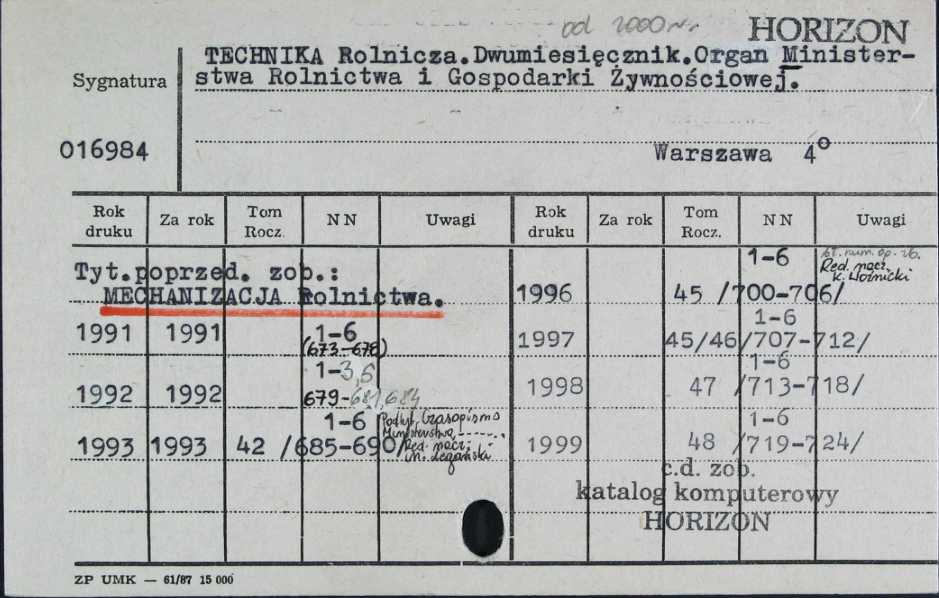 od 2000 r.
HORIZON
TECHNIKA Rolnicza.Dwumiesięcznik.Organ Minister-
Sygnatura
stwa Rolnictwa i Gospodarki Żywnościowej.
016984
Warszawa 4º
Rok druku Za rok Tom Rocz. N N Uwagi Rok druku Za rok Tom Rocz. N N Uwagi
Tyt.poprzed. zob.:
MECHANIZACJA Rolnictwa.
1991 1991 1-6
(673-678)
1992 1992 1-3,6
679-681,684
1993 1993 42 1-6
/685-690/
Podtyt. Czasopismo
Ministerstwa
Red. nacz.
1996 45 1-6
/700-706/
Red. nacz.
K. Woźnicki
1997 45/46 1-6
/707-712/
1998 47 1-6
/713-718/
1999 48 1-6
/719-724/
c.d. zob.
katalog komputerowy
HORIZON
ZP UMK — 61/87 15 000